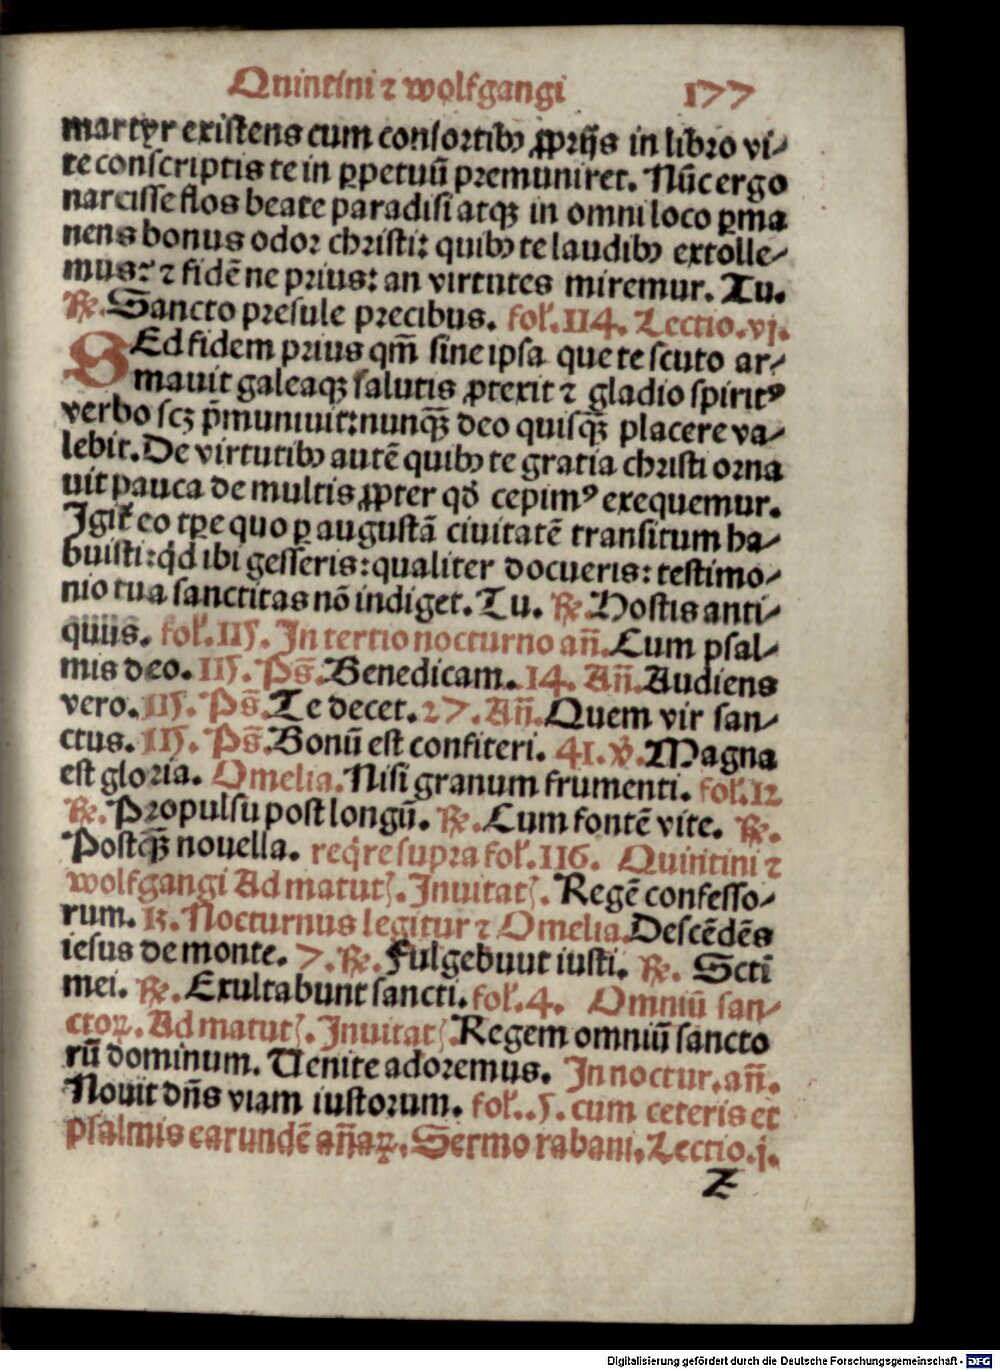 Quintini ⁊ wolfgangi 177
martyr existens cum consortibꝰ ꝓprijs in libro vi-
te conscriptis te in ꝑpetuū premuniret. Nūc ergo
narcisse flos beate paradisi atqꝫ in omni loco ꝑma
nens bonus odor christi: quibꝰ te laudibꝰ extolle-
mus: ⁊ fidē ne prius: an virtutes miremur. Tu.
℞. Sancto presule precibus. fol. 114. Lectio. vj.
SEd fidem prius qm̄ sine ipsa que te scuto ar-
mauit galeaqꝫ salutis ꝓtexit ⁊ gladio spiritꝰ
verbo scꝫ p̄muniuit: nunqꝫ̄ deo quisqꝫ̄ placere va-
lebit. De virtutibꝰ autē quibꝰ te gratia christi orna
uit pauca de multis ꝓpter qd̄ cepimꝰ exequemur.
Igit̄ eo tꝑe quo ꝑ augustā ciuitatē transitum ha-
buisti: qd̄ ibi gesseris: qualiter docueris: testimo-
nio tua sanctitas nō indiget. Tu. ℞. Hostis anti-
quus. fol. 115. In tertio nocturno an̄. Cum psal-
mis deo. 115. Ps̄. Benedicam. 14. An̄. Audiens
vero. 115. Ps̄. Te decet. 27. An̄. Quem vir san-
ctus. 115. Ps̄. Bonū est confiteri. 41. ℣. Magna
est gloria. Omelia. Nisi granum frumenti. fol. 12
℞. Propulsu post longū. ℞. Cum fontē vite. ℞.
Postqꝫ̄ nouella. reqre supra fol. 116. Quintini ⁊
wolfgangi Ad matut̄. Inuitat̄. Regē confesso-
rum. 13. Nocturnus legitur ⁊ Omelia. Descēdēs
iesus de monte. 7. ℞. Fulgebunt iusti. ℞. Scti
mei. ℞. Exultabunt sancti. fol. 4. Omniū san-
ctoꝝ. Ad matut̄. Inuitat̄. Regem omniū sancto
rū dominum. Uenite adoremus. In noctur. an̄.
Nouit dn̄s viam iustorum. fol. 5. cum ceteris et
psalmis earundē an̄aꝝ. Sermo rabani. Lectio. j.
Z
Digitalisierung gefördert durch die Deutsche Forschungsgemeinschaft - DFG